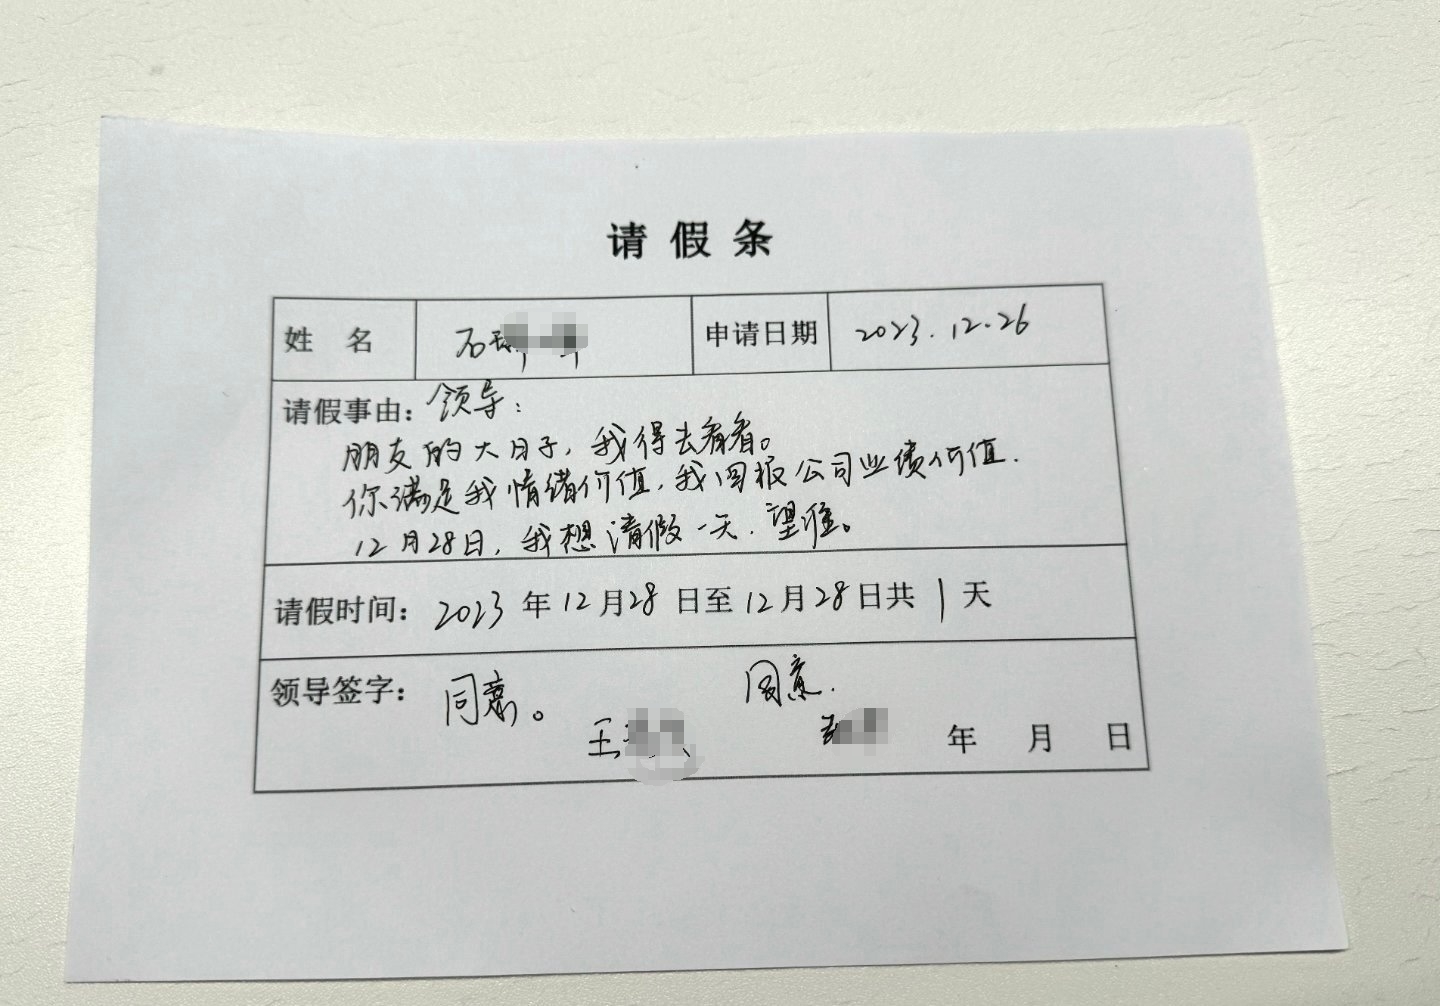 请假条
姓 名 石 申请日期 2023.12.26
请假事由：领导：
朋友的大日子，我得去看看。
你满足我情绪价值，我回报公司业绩价值.
12月28日，我想请假一天.望准。
请假时间：2023年12月28日至12月28日共1天
领导签字：同意。 同意.
王 年 月 日